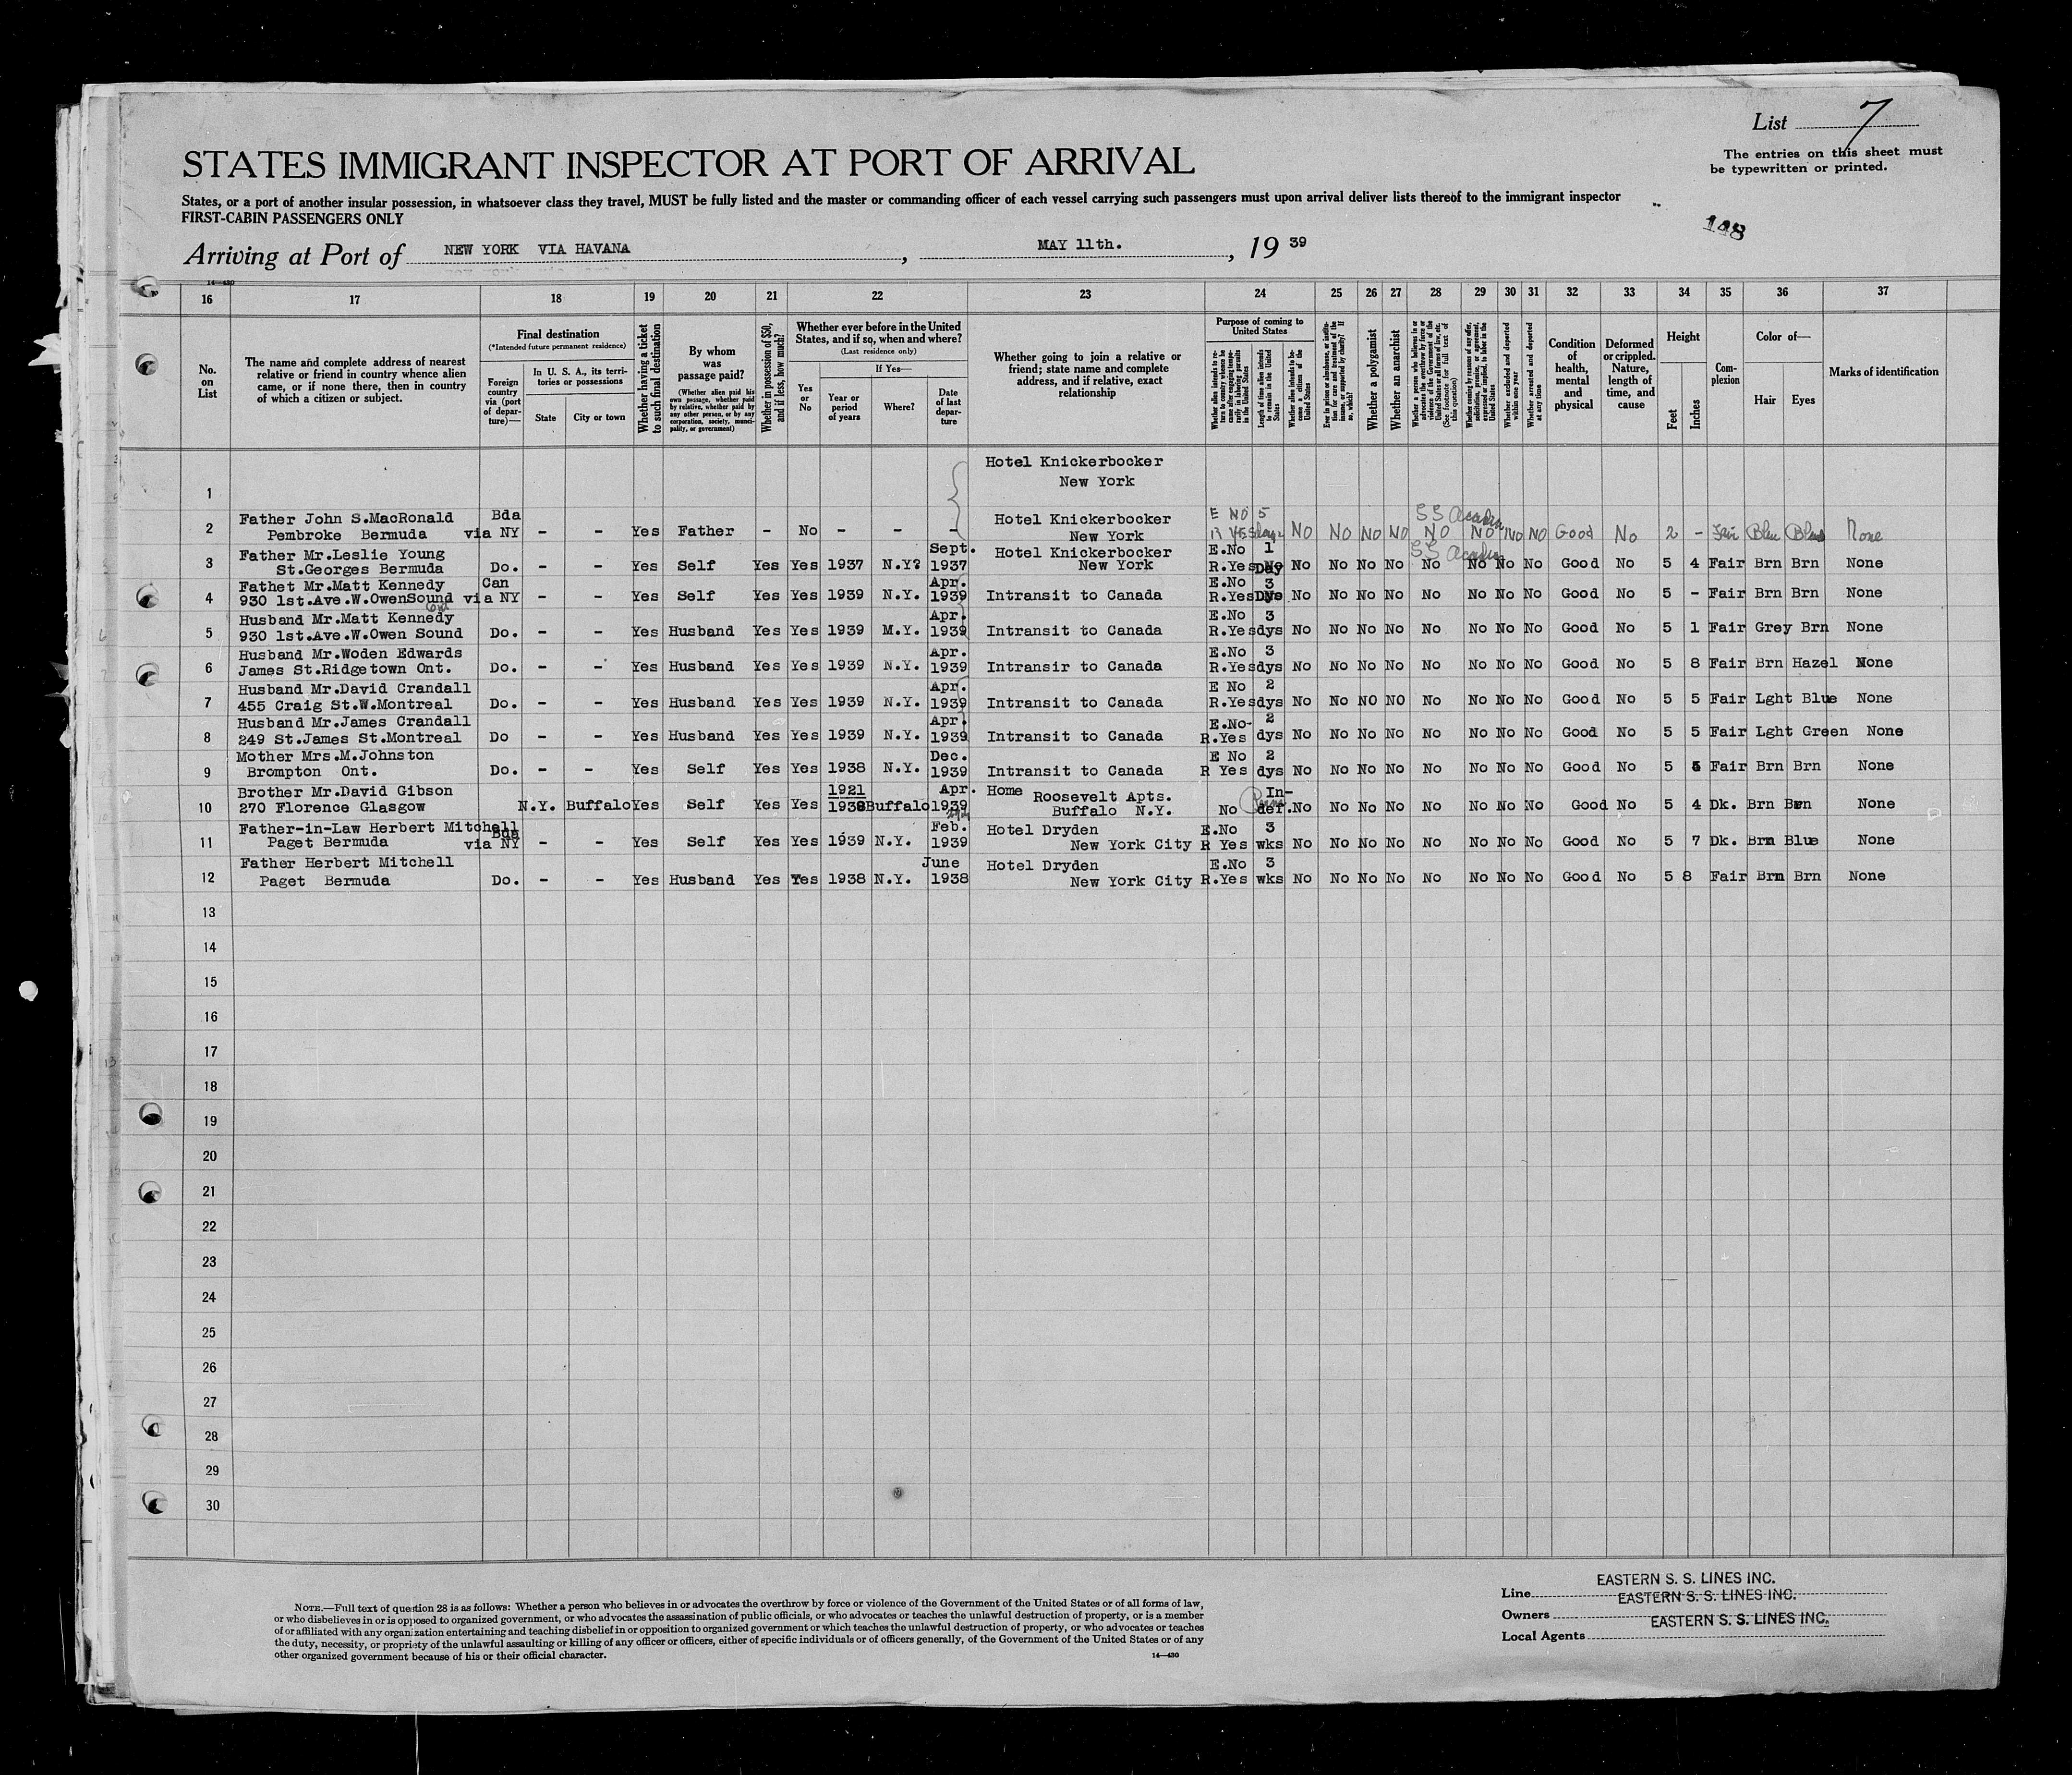 List 7
The entries on this sheet must
be typewritten or printed.
STATES IMMIGRANT INSPECTOR AT PORT OF ARRIVAL
States, or a port of another insular possession, in whatsoever class they travel, MUST be fully listed and the master or commanding officer of each vessel carrying such passengers must upon arrival deliver lists thereof to the immigrant inspector
FIRST-CABIN PASSENGERS ONLY
148
Arriving at Port of NEW YORK VIA HAVANA, MAY 11th., 19 39
14—430
16 17 18 19 20 21 22 23 24 25 26 27 28 29 30 31 32 33 34 35 36 37
No. on List
The name and complete address of nearest relative or friend in country whence alien came, or if none there, then in country of which a citizen or subject.
Final destination
(*Intended future permanent residence)
Foreign country via (port of departure)—
In U. S. A., its territories or possessions
State
City or town
Whether having a ticket to such final destination
By whom was passage paid?
(Whether alien paid his own passage, whether paid by relative, whether paid by any other person, or by any corporation, society, municipality, or government)
Whether in possession of $50, and if less, how much?
Whether ever before in the United States, and if so, when and where?
(Last residence only)
Yes or No
If Yes—
Year or period of years
Where?
Date of last departure
Whether going to join a relative or friend; state name and complete address, and if relative, exact relationship
Purpose of coming to United States
Whether alien intends to return to country whence he came after engaging temporarily in laboring pursuits in the United States
Length of time alien intends to remain in the United States
Whether alien intends to become a citizen of the United States
Ever in prison or almshouse, or institution for care and treatment of the insane, or supported by charity? If so, which?
Whether a polygamist
Whether an anarchist
Whether a person who believes in or advocates the overthrow by force or violence of the Government of the United States or all forms of law, etc. (See footnote for full text of this question)
Whether coming by reasons of any offer, solicitation, promise, or agreement, expressed or implied, to labor in the United States
Whether excluded and deported within one year
Whether arrested and deported at any time
Condition of health, mental and physical
Deformed or crippled. Nature, length of time, and cause
Height
Feet
Inches
Complexion
Color of—
Hair
Eyes
Marks of identification
1 Hotel Knickerbocker
New York
2 Father John S.MacRonald Bda Hotel Knickerbocker E NO 5 SS Acadia
Pembroke Bermuda via NY - - Yes Father - No - - - New York R Yes days No No No No No No No No Good No 2 - Fair None
3 Father Mr.Leslie Young Sept. Hotel Knickerbocker E.No 1 SS Acadia
St.Georges Bermuda Do. - - Yes Self Yes Yes 1937 N.Y? 1937 New York R.Yes Day No No No No No No No No Good No 5 4 Fair Brn Brn None
4 Fathet Mr.Matt Kennedy Can Apr. E.No 3
930 1st.Ave.W.OwenSound via NY - - Yes Self Yes Yes 1939 N.Y. 1939 Intransit to Canada R.Yes Dys No No No No No No No No Good No 5 - Fair Brn Brn None
5 Husband Mr.Matt Kennedy Ont Apr. E.No 3
930 1st.Ave.W.Owen Sound Do. - - Yes Husband Yes Yes 1939 M.Y. 1939 Intransit to Canada R.Yes dys No No No No No No No No Good No 5 1 Fair Grey Brn None
6 Husband Mr.Woden Edwards Apr. E.No 3
James St.Ridgetown Ont. Do. - - Yes Husband Yes Yes 1939 N.Y. 1939 Intransir to Canada R.Yes dys No No No No No No No No Good No 5 8 Fair Brn Hazel None
7 Husband Mr.David Crandall Apr. E No 2
455 Craig St.W.Montreal Do. - - Yes Husband Yes Yes 1939 N.Y. 1939 Intransit to Canada R.Yes dys No No NO NO No No No No Good No 5 5 Fair Lght Blue None
8 Husband Mr.James Crandall Apr. E.No- 2
249 St.James St.Montreal Do - - Yes Husband Yes Yes 1939 N.Y. 1939 Intransit to Canada R.Yes dys No No No No No No No No Good No 5 5 Fair Lght Green None
9 Mother Mrs.M.Johnston Dec. E No 2
Brompton Ont. Do. - - Yes Self Yes Yes 1938 N.Y. 1939 Intransit to Canada R Yes dys No No No No No No No No Good No 5 Fair Brn Brn None
10 Brother Mr.David Gibson 1921 Apr. Home Roosevelt Apts. In-
270 Florence Glasgow N.Y. Buffalo Yes Self Yes Yes 1938 Buffalo 1939 Buffalo N.Y. No def. No No No No No No No No Good No 5 4 Dk. Brn Brn None
11 Father-in-Law Herbert Mitchell Bda Feb. Hotel Dryden E.No 3
Paget Bermuda via NY - - Yes Self Yes Yes 1939 N.Y. 1939 New York City R Yes wks No No No No No No No No Good No 5 7 Dk. Brn Blue None
12 Father Herbert Mitchell June Hotel Dryden E.No 3
Paget Bermuda Do. - - Yes Husband Yes Yes 1938 N.Y. 1938 New York City R.Yes wks No No No No No No No No Good No 5 8 Fair Brn Brn None
13
14
15
16
17
18
19
20
21
22
23
24
25
26
27
28
29
30
NOTE.—Full text of question 28 is as follows: Whether a person who believes in or advocates the overthrow by force or violence of the Government of the United States or of all forms of law,
or who disbelieves in or is opposed to organized government, or who advocates the assassination of public officials, or who advocates or teaches the unlawful destruction of property, or is a member
of or affiliated with any organization entertaining and teaching disbelief in or opposition to organized government or which teaches the unlawful destruction of property, or who advocates or teaches
the duty, necessity, or propriety of the unlawful assaulting or killing of any officer or officers, either of specific individuals or of officers generally, of the Government of the United States or of any
other organized government because of his or their official character.
14—430
Line EASTERN S. S. LINES INC.
Owners EASTERN S. S. LINES INC.
Local Agents EASTERN S. S. LINES INC.